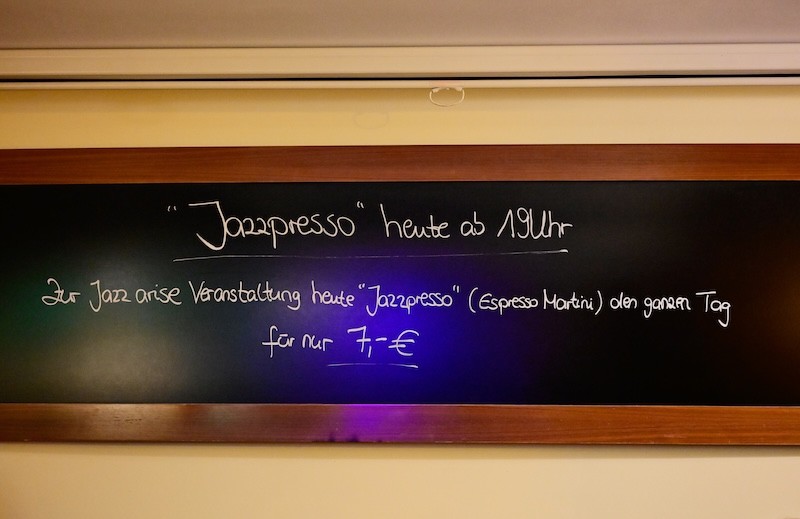 "Jazzpresso" heute ab 19Uhr
Zur Jazz arise Veranstaltung heute "Jazzpresso" (Espresso Martini) den ganzen Tag
für nur 7,-€